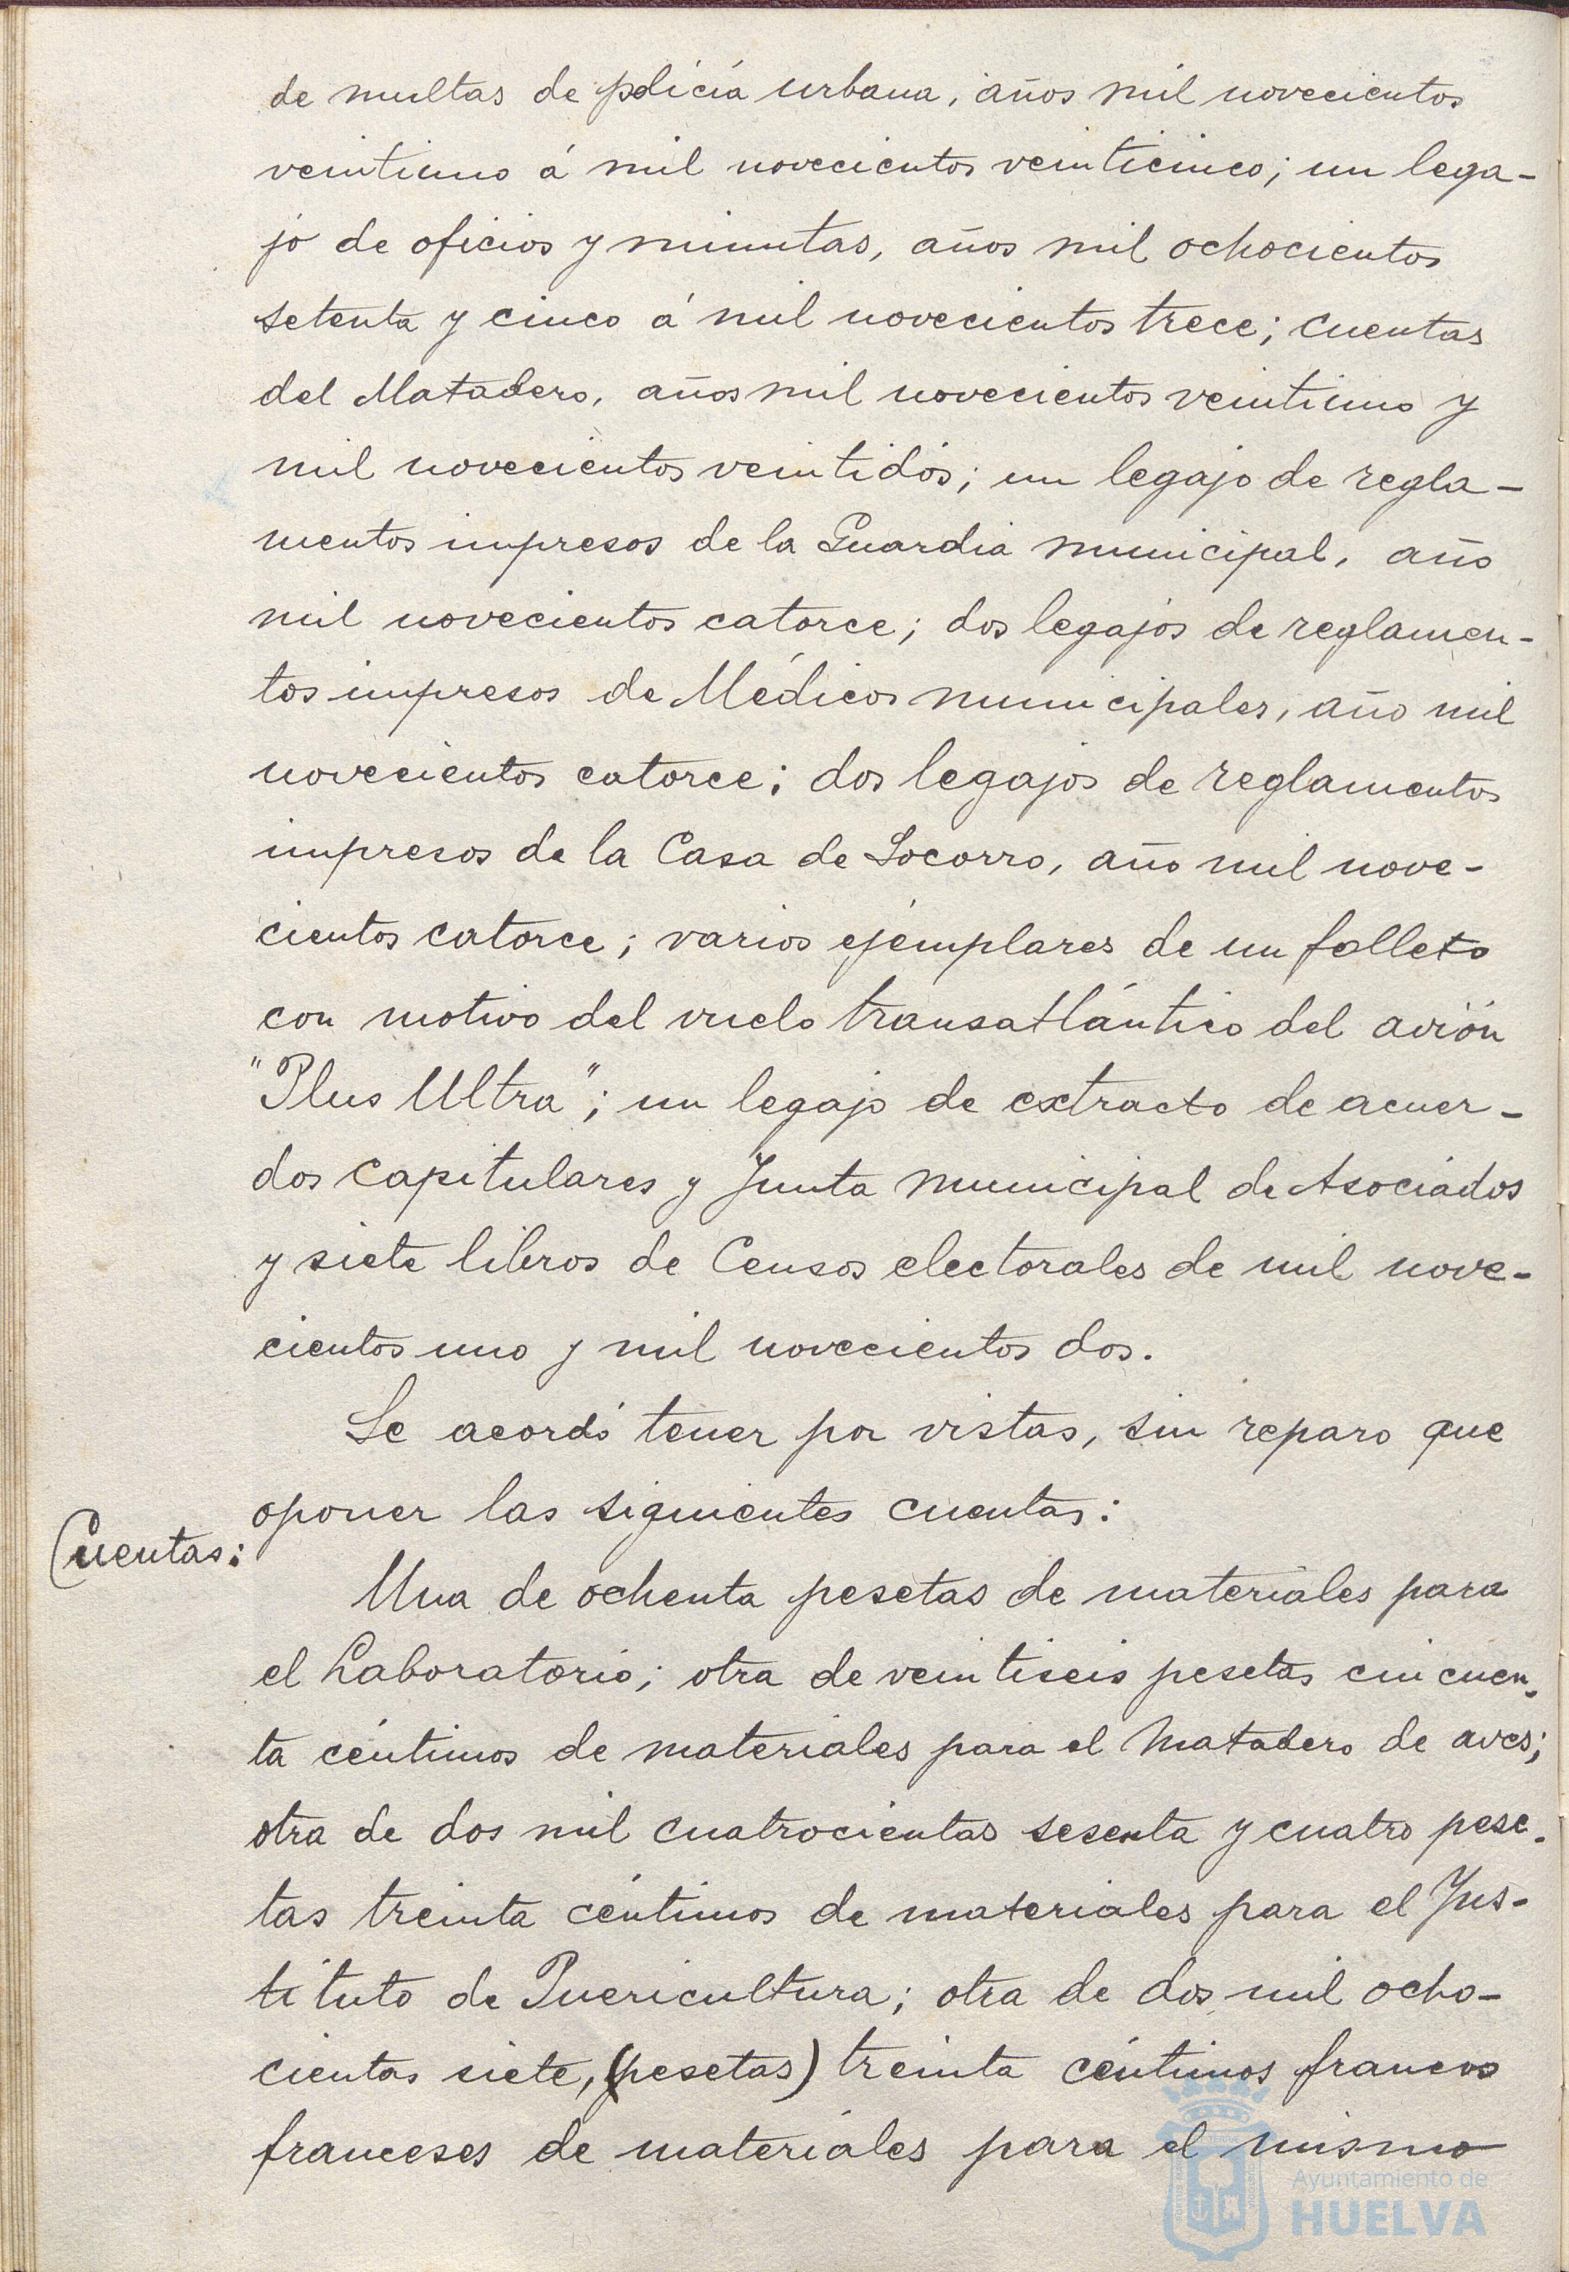 de multas de policía urbana, años mil novecientos
veintiuno á mil novecientos veinticinco; un lega-
jo de oficios y minutas, años mil ochocientos
setenta y cinco á mil novecientos trece; cuentas
del Matadero, años mil novecientos veintiuno y
mil novecientos veintidós; un legajo de regla-
mentos impresos de la Guardia municipal, año
mil novecientos catorce; dos legajos de reglamen-
tos impresos de Médicos municipales, año mil
novecientos catorce; dos legajos de reglamentos
impresos de la Casa de Socorro, año mil nove-
cientos catorce; varios ejémplares de un folleto
con motivo del vuelo transatlántico del avión
"Plus Ultra"; un legajo de extracto de acuer-
dos capitulares y Junta municipal de Asociados
y siete libros de Censos electorales de mil nove-
cientos uno y mil novecientos dos.
Se acordó tener por vistas, sin reparo que
oponer las siguientes cuentas:
Cuentas:
Una de ochenta pesetas de materiales para
el Laboratorio; otra de veintiseis pesetas cincuen-
ta céntimos de materiales para el Matadero de aves;
otra de dos mil cuatrocientas sesenta y cuatro pese-
tas treinta céntimos de materiales para el Ins-
tituto de Puericultura; otra de dos mil ocho-
cientas siete, (pesetas) treinta céntimos francos
franceses de materiales para el mismo
Ayuntamiento de
HUELVA